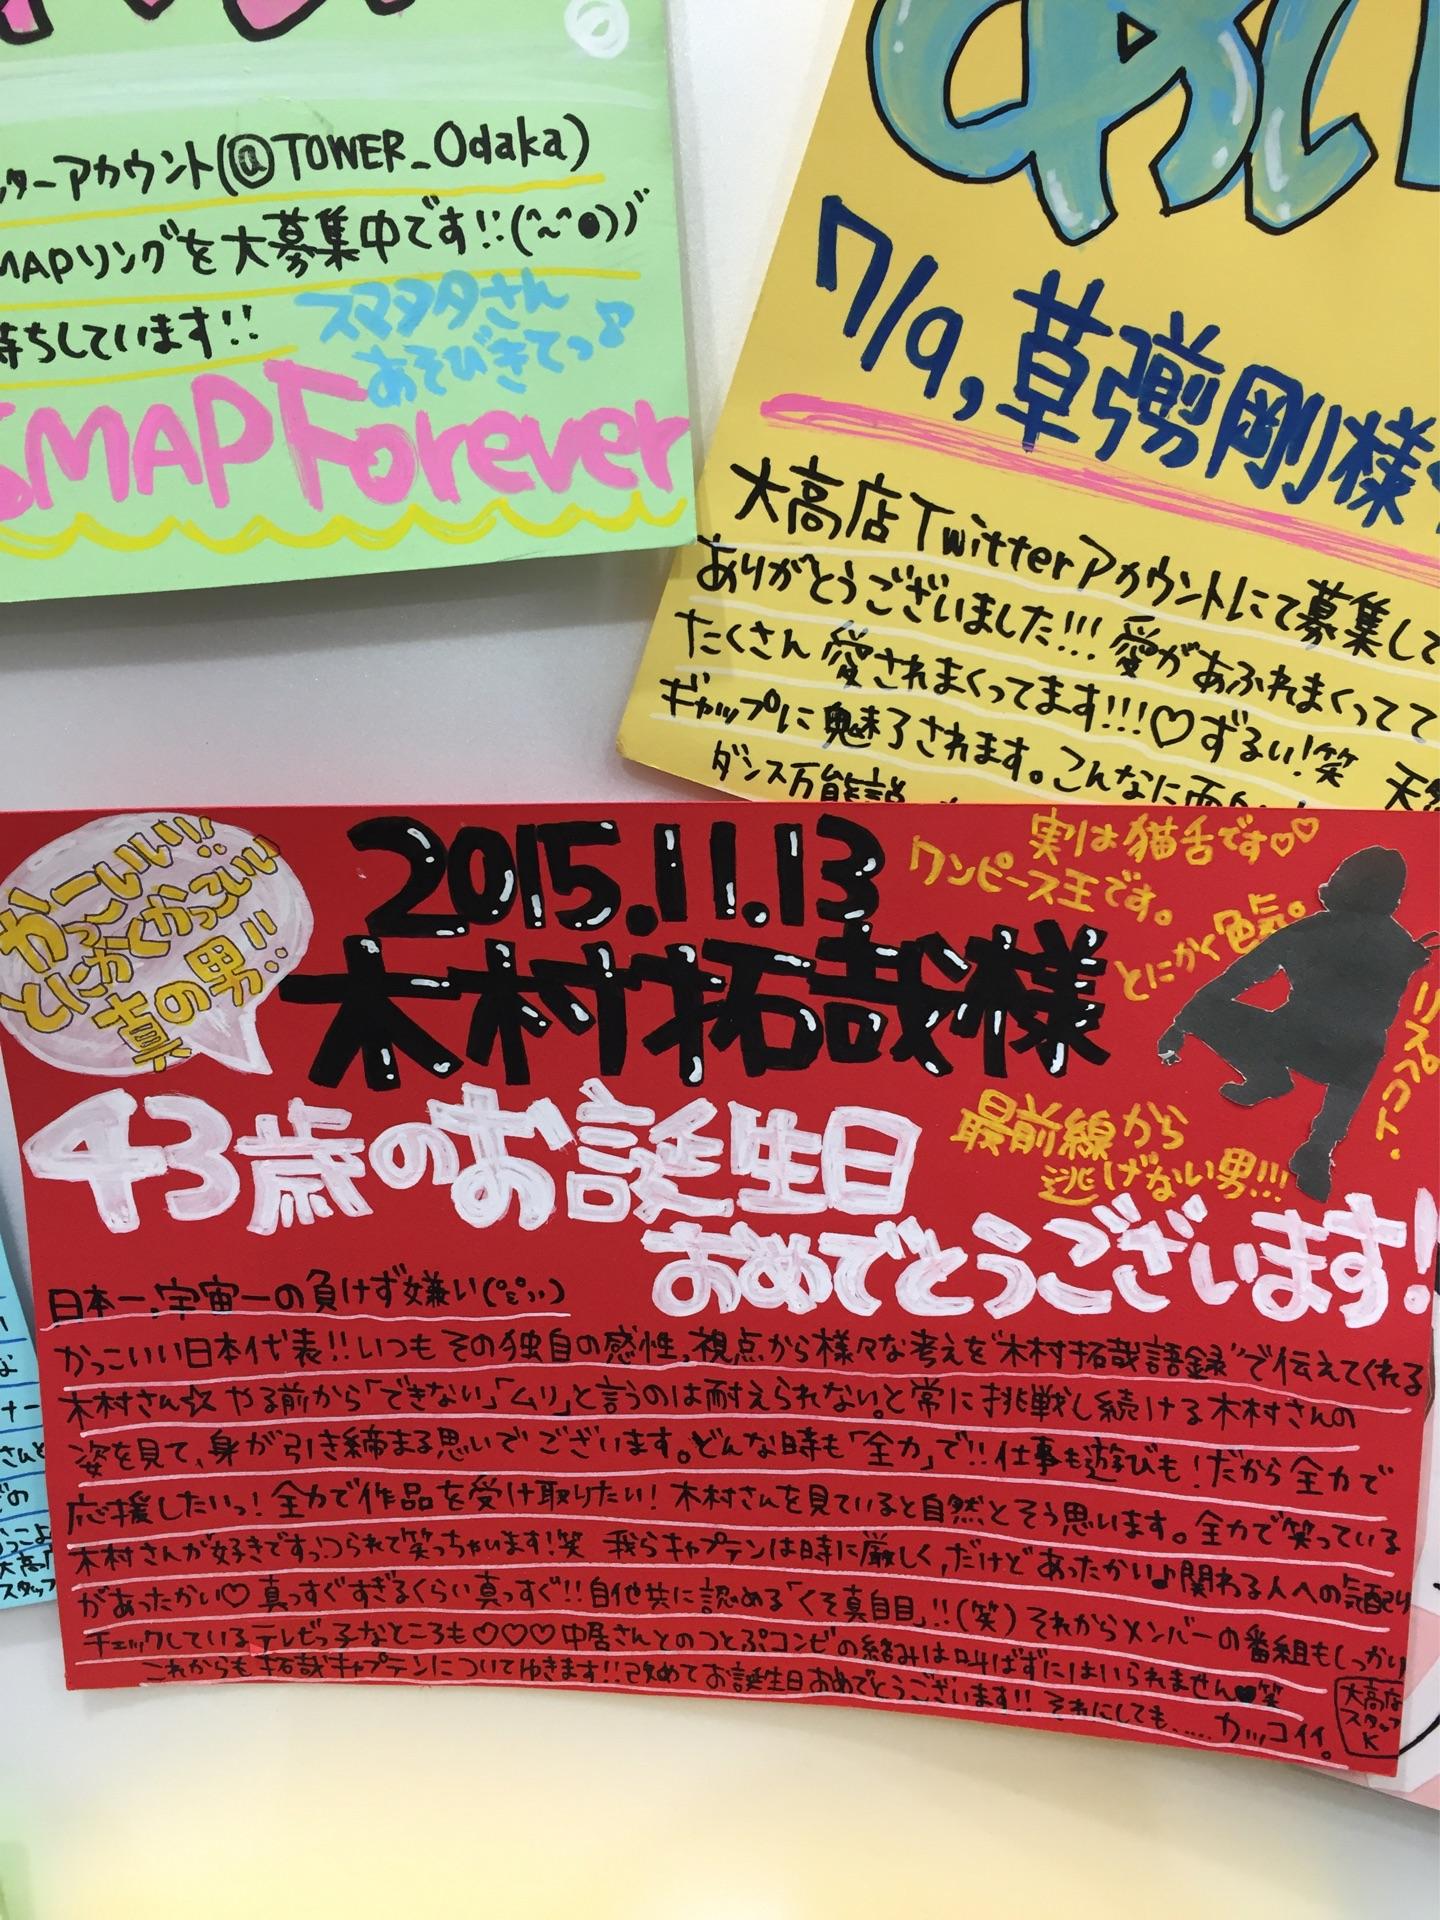 ッターアカウント(@TOWER_Odaka)
MAPソングを大募集中です!!(^~^●)ﾉﾞ
待ちしています!!
スマヲタさん
あそびきてっ♪
SMAP Forever
7/9, 草彅剛様
大高店Twitterアカウントにて募集して
ありがとうございました!!! 愛があふれまくってて
たくさん愛されまくってます!!!♡ずるい!笑
ギャップに魅了されます。こんなに面白い
ダンス万能説
かっこーいい!!
とにかくかっこいい
真の男!!
2015.11.13
木村拓哉様
43歳のお誕生日
おめでとうございます!
実は猫舌です♡♡
ワンピース王です。
とにかく色気。
リスペクト.
最前線から
逃げない男!!!
日本一、宇宙一の負けず嫌い
かっこいい日本代表!!いつもその独自の感性、視点から様々な考えを"木村拓哉語録"で伝えてくれる
木村さん☆やる前から「できない」「ムリ」と言うのは耐えられない。と常に挑戦し続ける木村さんの
姿を見て、身が引き締まる思いでございます。どんな時も「全力」で!!仕事も遊びも!だから全力で
応援したいっ!全力で作品を受け取りたい!木村さんを見ていると自然とそう思います。全力で笑っている
木村さんが好きですっつられて笑っちゃいます!笑 我らキャプテンは時に厳しく、だけどあったかい♪関わる人への気配り
があったかい♡真っすぐすぎるくらい真っすぐ!!自他共に認める「くそ真面目」!!(笑)それからメンバーの番組もしっかり
チェックしているテレビっ子なところも♡♡♡中居さんとのつとぷコンビの絡みは叫ばずにはいられません♥笑
これからも拓哉キャプテンについてゆきます!!改めてお誕生日おめでとうございます!! それにしても......カッコイイ。
大高店
スタッフ
K
な
ナー
さんと
大高店
スタッフ